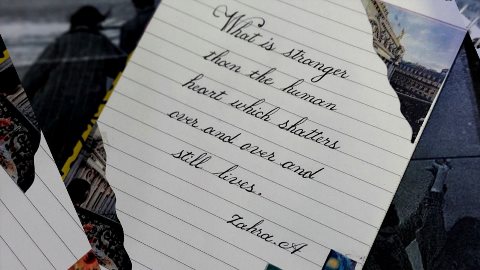 What is stranger
than the human
heart which shatters
over and over and
still lives.
Zahra.A